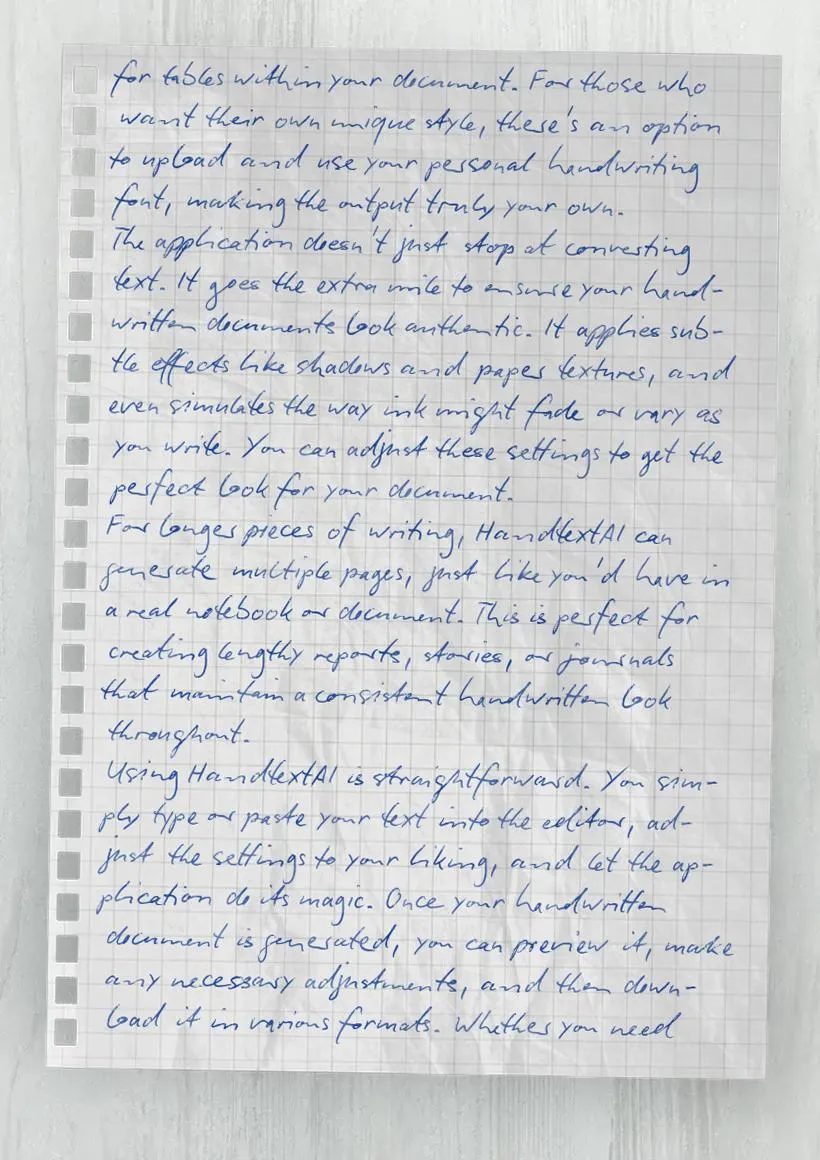 for tables within your document. For those who
want their own unique style, there's an option
to upload and use your personal handwriting
font, making the output truly your own.
The application doesn't just stop at converting
text. It goes the extra mile to ensure your hand-
written documents look authentic. It applies sub-
tle effects like shadows and paper textures, and
even simulates the way ink might fade or vary as
you write. You can adjust these settings to get the
perfect look for your document.
For longer pieces of writing, HandtextAI can
generate multiple pages, just like you'd have in
a real notebook or document. This is perfect for
creating lengthy reports, stories, or journals
that maintain a consistent handwritten look
throughout.
Using HandtextAI is straightforward. You sim-
ply type or paste your text into the editor, ad-
just the settings to your liking, and let the ap-
plication do its magic. Once your handwritten
document is generated, you can preview it, make
any necessary adjustments, and then down-
load it in various formats. Whether you need